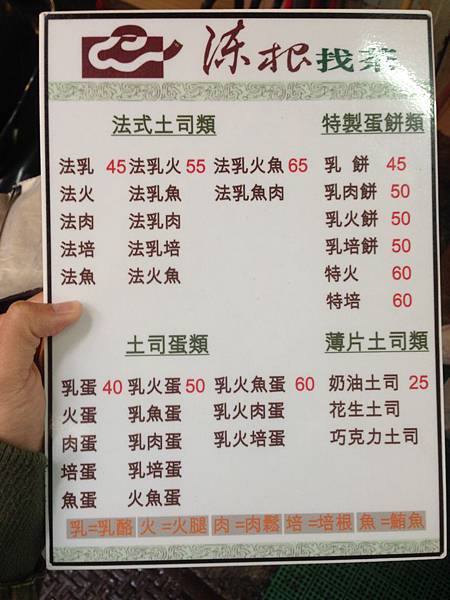 涷根找茶
法式土司類 特製蛋餅類
法乳 45 法乳火 55 法乳火魚 65 乳餅 45
法火 法乳魚 法乳魚肉 乳肉餅 50
法肉 法乳肉 乳火餅 50
法培 法乳培 乳培餅 50
法魚 法火魚 特火 60
特培 60
土司蛋類 薄片土司類
乳蛋 40 乳火蛋 50 乳火魚蛋 60 奶油土司 25
火蛋 乳魚蛋 乳火肉蛋 花生土司
肉蛋 乳肉蛋 乳火培蛋 巧克力土司
培蛋 乳培蛋
魚蛋 火魚蛋
乳=乳酪 火=火腿 肉=肉鬆 培=培根 魚=鮪魚